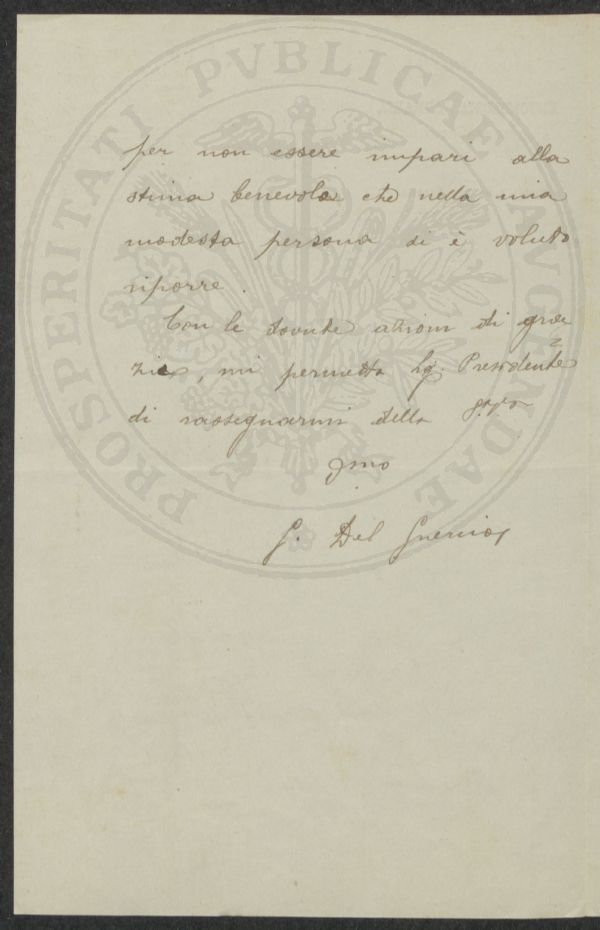 PROSPERITATI PVBLICAE AVGENDAE
per non essere impari alla
stima benevola che nella mia
modesta persona si è voluto
riporre.
Con le dovute azioni di gra
zie, mi permetto Sig. Presidente
di rassegnarmi della
G. Del Guercio